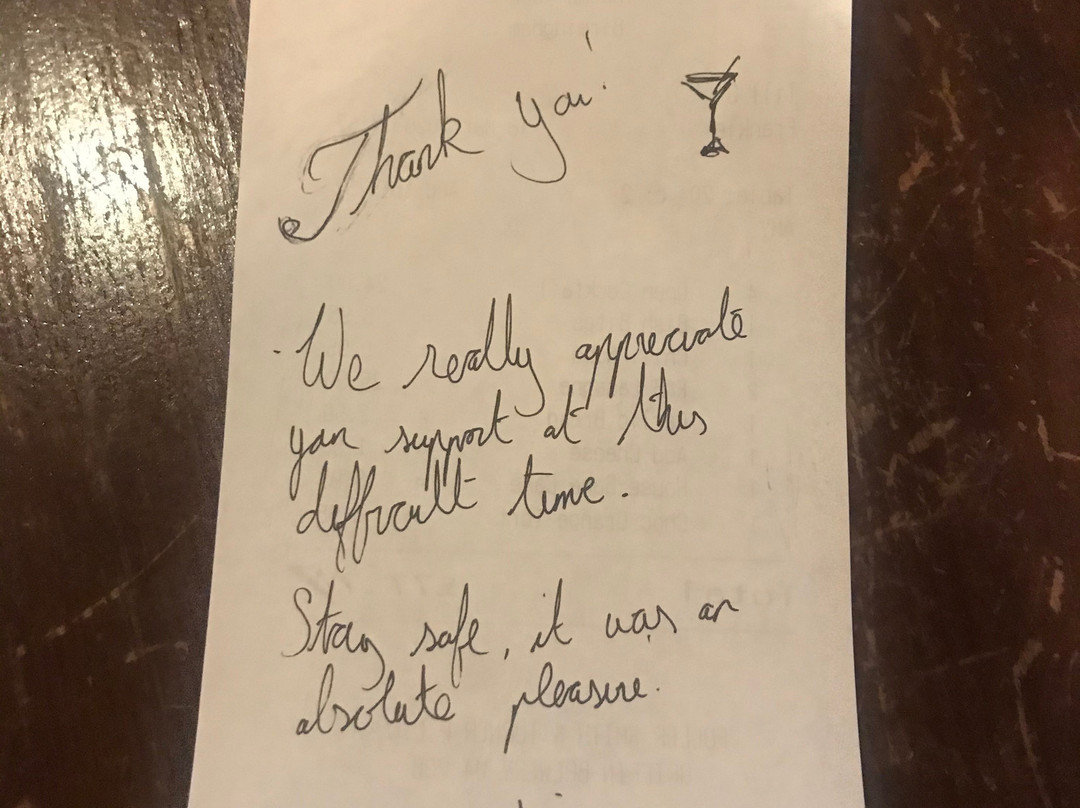 Thank you!
We really appreciate
your support at this
difficult time.
Stay safe, it was an
absolute pleasure.